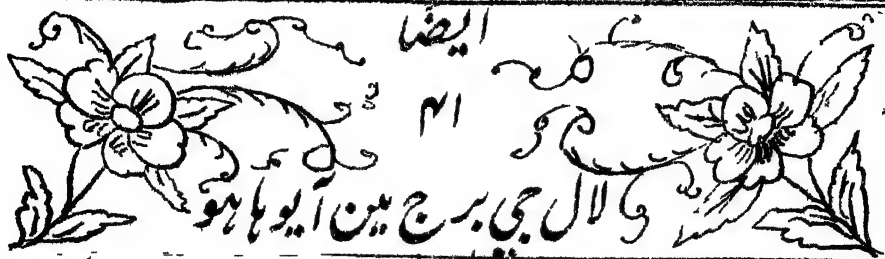 ایضا
۴۱
لال جی برج مین آیو ہا ہو